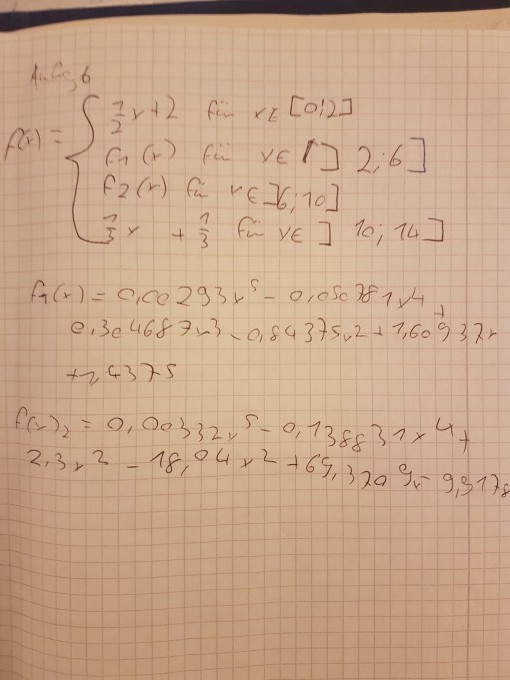 Aufg 6
f(x) = { 1/2 x + 2 für x ∈ [0;2]
f1 (x) für x ∈ ] 2;6]
f2(x) für x ∈ ]6;10]
1/3 x + 1/3 für x ∈ ] 10; 14]
f1(x) = 0,00293x^5 - 0,05078 1x^4 +
0,304687x^3 - 0,84375x^2 + 1,60937x
+1,4375
f(x)2 = 0,00332x^5 - 0,138831x^4 +
2,3x^3 - 18,04x^2 + 69,3709x - 9,9178